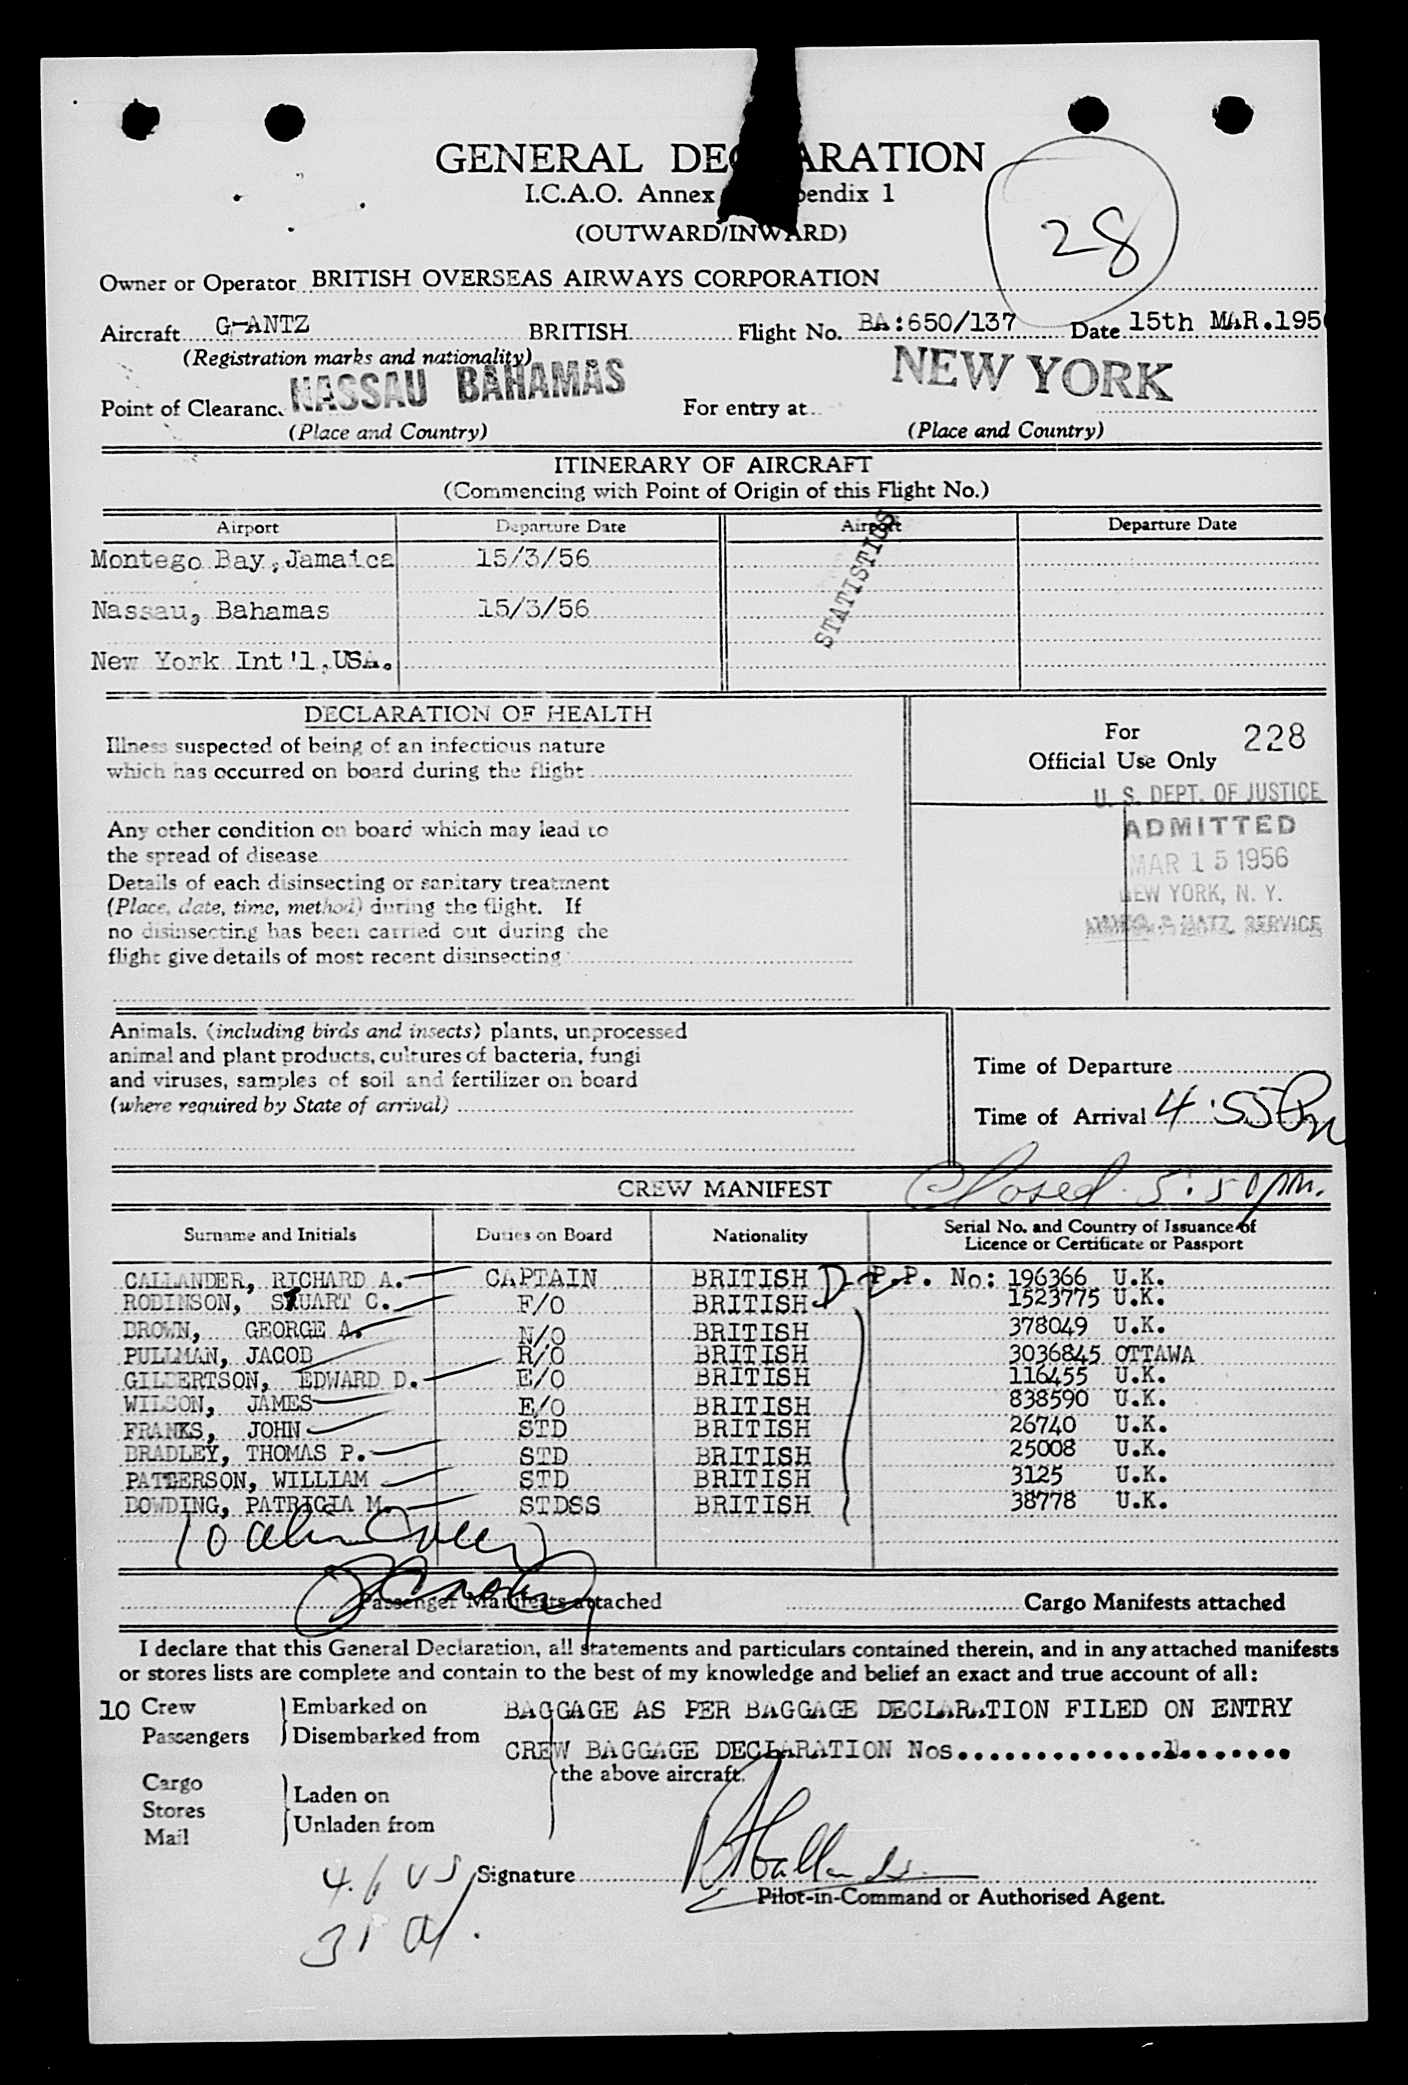 GENERAL DECLARATION
I.C.A.O. Annex pendix 1
(OUTWARD/INWARD)
28
Owner or Operator BRITISH OVERSEAS AIRWAYS CORPORATION
Aircraft G-ANTZ BRITISH Flight No. BA:650/137 Date 15th MAR.195
(Registration marks and nationality)
Point of Clearanc NASSAU BAHAMAS For entry at NEW YORK
(Place and Country) (Place and Country)
ITINERARY OF AIRCRAFT
(Commencing with Point of Origin of this Flight No.)
Airport Departure Date Airport Departure Date
STATISTICS
Montego Bay, Jamaica 15/3/56
Nassau, Bahamas 15/3/56
New York Int'l, USA.
DECLARATION OF HEALTH
Illness suspected of being of an infectious nature
which has occurred on board during the flight
Any other condition on board which may lead to
the spread of disease
Details of each disinsecting or sanitary treatment
(Place, date, time, method) during the flight. If
no disinsecting has been carried out during the
flight give details of most recent disinsecting
For 228
Official Use Only
U. S. DEPT. OF JUSTICE
ADMITTED
MAR 15 1956
NEW YORK, N. Y.
NATZ. SERVICE
Animals, (including birds and insects) plants, unprocessed
animal and plant products, cultures of bacteria, fungi
and viruses, samples of soil and fertilizer on board
(where required by State of arrival)
Time of Departure
Time of Arrival 4:55 Pm
Closed 5:50 pm.
CREW MANIFEST
Surname and Initials Duties on Board Nationality Serial No. and Country of Issuance of
Licence or Certificate or Passport
CALLANDER, RICHARD A. CAPTAIN BRITISH D-D P.P. No: 196366 U.K.
ROBINSON, STUART C. F/O BRITISH 1523775 U.K.
BROWN, GEORGE A. N/O BRITISH 378049 U.K.
PULLMAN, JACOB R/O BRITISH 3036845 OTTAWA
GILBERTSON, EDWARD D. E/O BRITISH 116455 U.K.
WILSON, JAMES E/O BRITISH 838590 U.K.
FRANKS, JOHN STD BRITISH 26740 U.K.
BRADLEY, THOMAS P. STD BRITISH 25008 U.K.
PATTERSON, WILLIAM STD BRITISH 3125 U.K.
DOWDING, PATRICIA M. STDSS BRITISH 38778 U.K.
10 alien Crew
Passenger Manifests attached Cargo Manifests attached
I declare that this General Declaration, all statements and particulars contained therein, and in any attached manifests
or stores lists are complete and contain to the best of my knowledge and belief an exact and true account of all:
10 Crew Embarked on BAGGAGE AS PER BAGGAGE DECLARATION FILED ON ENTRY
Passengers Disembarked from
CREW BAGGAGE DECLARATION Nos.....................
the above aircraft.
Cargo
Stores Laden on
Mail Unladen from
4.6 US
31 al.
Signature
Pilot-in-Command or Authorised Agent.